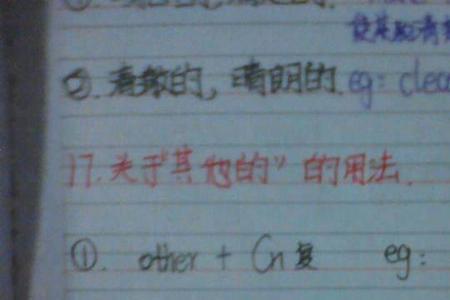 ②. 清澈的, 晴朗的. eg: clea
17. 关于"其他的"的用法.
①. other + Cn复 eg: